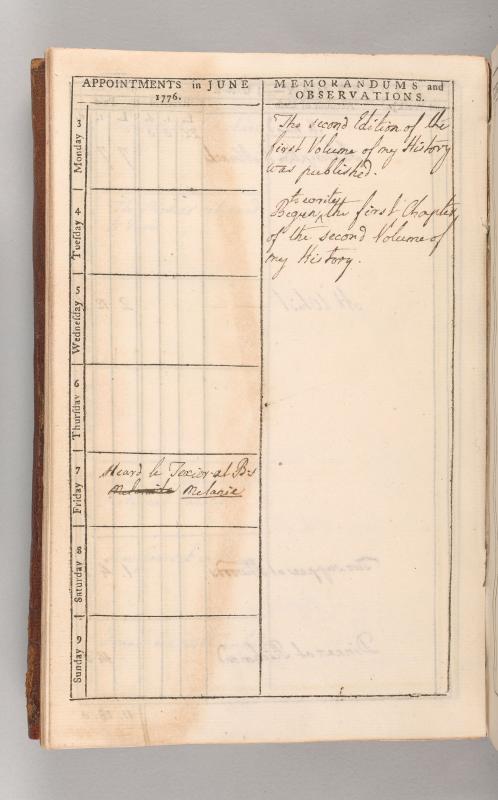 APPOINTMENTS in JUNE
1776.
MEMORANDUMS and
OBSERVATIONS.
Monday 3
The second Edition of the
first Volume of my History
was published.
Tuesday 4
to write
Begun the first Chapter
of the second Volume of
my History.
Wednesday 5
Thursday 6
Friday 7
Heard le Texier at B-s
Melanie
Saturday 8
Sunday 9